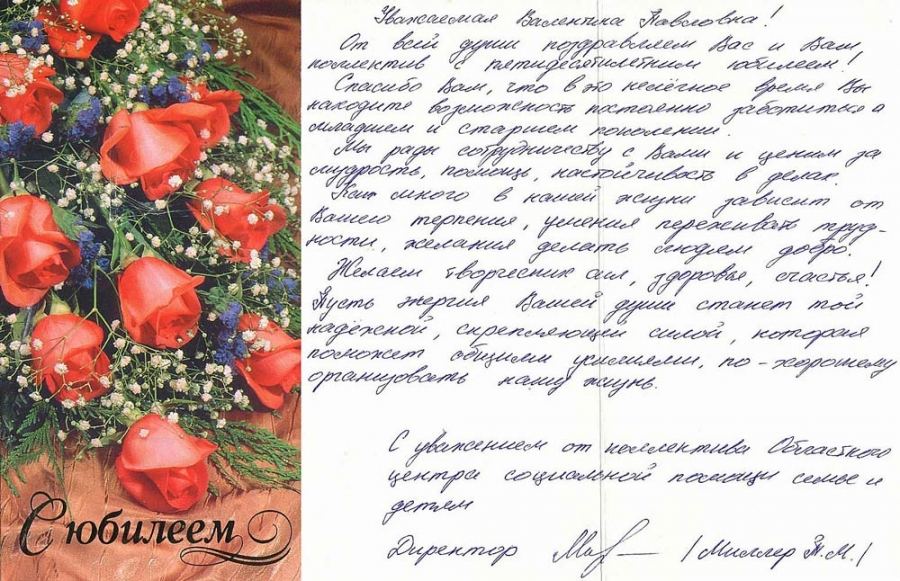 С юбилеем
Уважаемая Валентина Павловна!
От всей души поздравляем Вас и Ваш
коллектив с пятидесятилетним юбилеем!
Спасибо Вам, что в это нелёгкое время Вы
находите возможность постоянно заботиться о
младшем и старшем поколении.
Мы рады сотрудничеству с Вами и ценим за
мудрость, помощь, настойчивость в делах.
Как много в нашей жизни зависит от
Вашего терпения, умения переживать труд-
ности, желания делать людям добро.
Желаем творческих сил, здоровья, счастья!
Пусть энергия Вашей души станет той
надёжной, скрепляющей силой, которая
поможет общими усилиями, по-хорошему
организовать нашу жизнь.
С уважением от коллектива Областного
центра социальной помощи семье и
детям
Директор /Миллер Т.М./